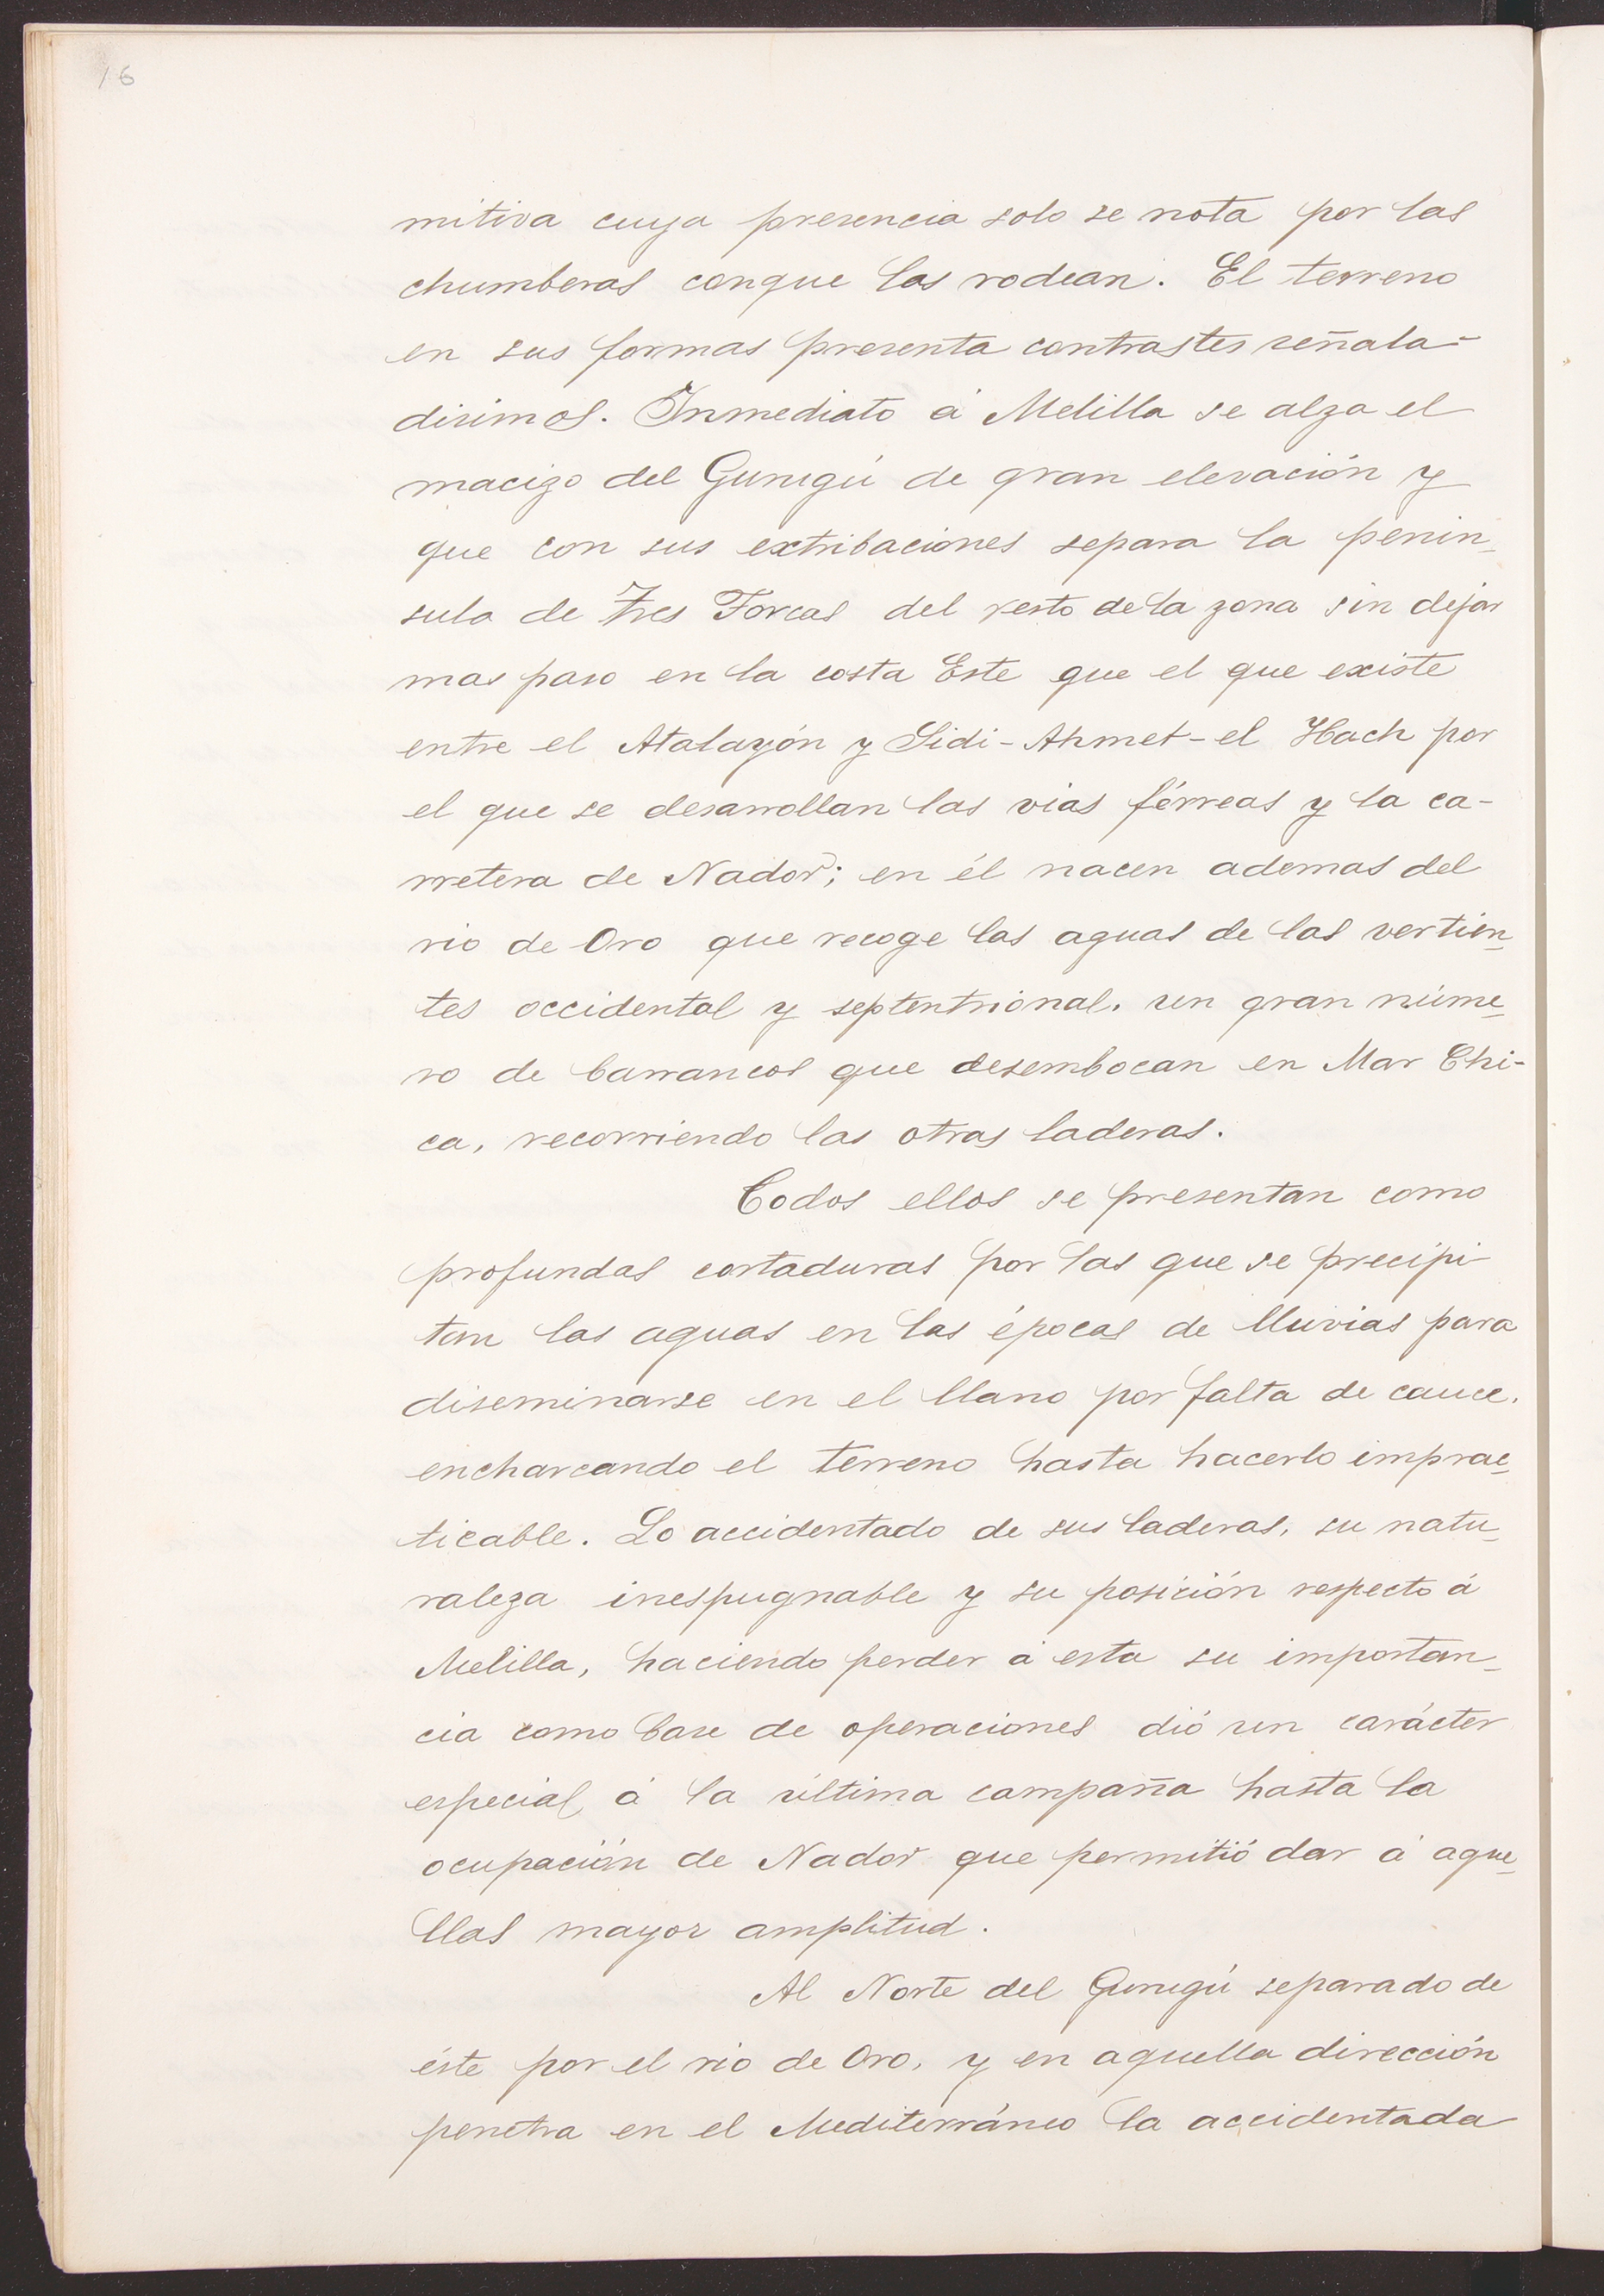 16
mitiva cuya presencia solo se nota por las
chumberas conque las rodean. El terreno
en sus formas presenta contrastes señala-
disimos. Inmediato á Melilla se alza el
macizo del Gurugú de gran elevación y
que con sus extribaciones separa la penin-
sula de Tres Forcas del resto de la zona sin dejar
mas paso en la costa Este que el que existe
entre el Atalayón y Sidi-Ahmet-el Hach por
el que se desarrollan las vias férreas y la ca-
rretera de Nador; en él nacen ademas del
rio de Oro que recoge las aguas de las vertien-
tes occidental y septentrional, un gran núme-
ro de barrancos que desembocan en Mar Chi-
ca, recorriendo las otras laderas.
Todos ellos se presentan como
profundas cortaduras por las que se precipi-
tan las aguas en las épocas de lluvias para
diseminarse en el llano por falta de cauce,
encharcando el terreno hasta hacerlo imprac-
ticable. Lo accidentado de sus laderas, su natu-
raleza inespugnable y su posición respecto á
Melilla, haciendo perder á esta su importan-
cia como base de operaciones dió un carácter
especial, á la última campaña hasta la
ocupación de Nador que permitió dar á aque-
llas mayor amplitud.
Al Norte del Gurugú separado de
éste por el rio de Oro, y en aquella dirección
penetra en el Mediterráneo la accidentada